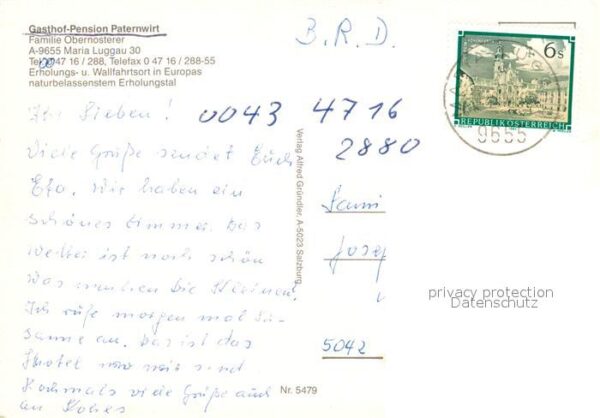 Gasthof-Pension Paternwirt
Familie Obernosterer
A-9655 Maria Luggau 30
Tel. 0047 16 / 288, Telefax 0 47 16 / 288-55
Erholungs- u. Wallfahrtsort in Europas
naturbelassenstem Erholungstal
B.R.D.
6s
REPUBLIK ÖSTERREICH
9655
Ihr Lieben!
0043 4716
2880
Viele Grüße sendet Euch
Wir haben ein
schönes Zimmer. Das
Wetter ist noch schön
Was machen die Kleinen?
Ich rufe morgen mal
an. Das ist das
Hotel wo wir sind
Nochmals viele Grüße auch
an
Verlag Alfred Gründler, A-5023 Salzburg
Nr. 5479
Josef
5042
privacy protection
Datenschutz